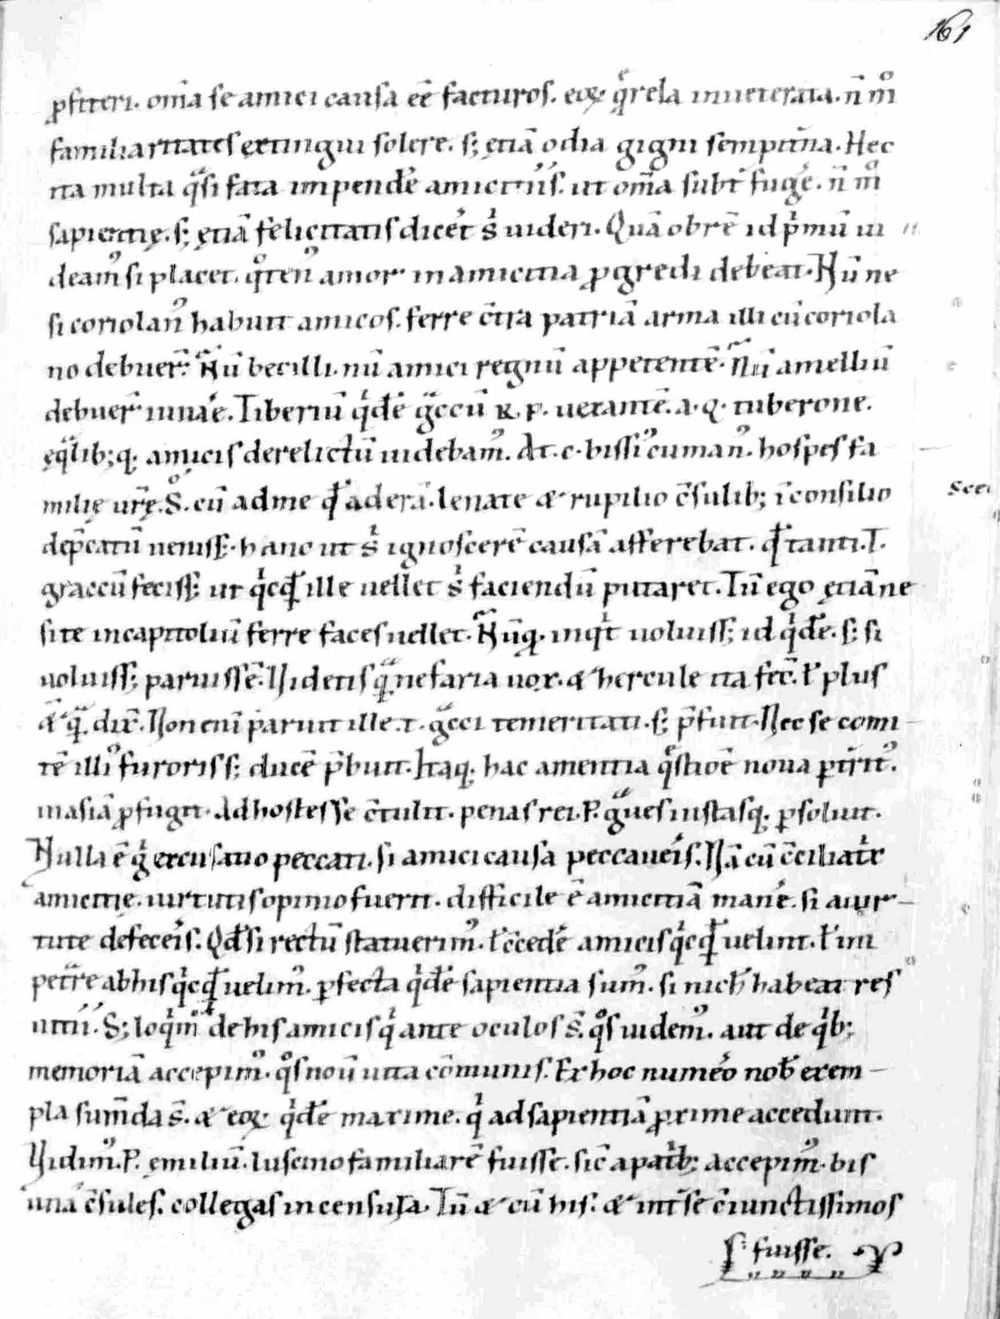 161
ꝓfiteri. om̄a se amici causa eē facturos. eoꝝ qͦrela inueterata. n̄ mͦ
familiaritates extingui solere. s; ętiā odia gigni sempit̄na. Hec
ita multa qͣsi fata impendēt amicitiis. ut om̄a subt̄fugē. n̄ mͦ
sapientię. s; ętiā felicitatis dicer̄ sͥ uideri. Quā obrē id pͥmū ui
deamꝰ si placet. qͣtenꝰ amor in amicitia ꝓgredi debeat. Nū ne
si coriolanꝰ habuit amicos. ferre c̄tra patriā arma illi cū coriola
no debuer̄. Nū becilli. nū amici regnū appetentē. Nū ameliū
debuer̄ iuuare. Tiberiū qͥdē gͣccū R. P. uexantē. a. Q. tuberone.
ęqͣlib; q; amicis derelictū uidebamꝰ. At. c. blossiꝰ cumanꝰ. hospes fa
milię urę̄. S. cū ad me qͩ aderā. lenate & rupilio c̄sulib; ī consilio
dep̄catū uenisset. hanc ut sͥ ignoscerē causā afferebat. qͩ tanti. T.
graccū fecisset ut qͥcqͩ ille uellet sͥ faciendū putaret. Tū ego ętiā ne
si te in capitoliū ferre faces uellet. Nūq; inqͥt uoluisset id qͥdē. s; si
uoluisset paruissē. Uidetis qͣ nefaria uox. & hercule ita fec̄. ł plus
& qͣ dix̄. Non enī paruit ille. t. gͣcci temeritati. s; p̄fuit. Nec se comi
tē illiꝰ furoris s; ducē p̄buit. Itaq; hac amentia qͦstiōe noua ꝑt̄ritꝰ.
in asiā ꝓfugit. Ad hostes se c̄tulit. penas rei. P. gͣues iustasq; ꝑsoluit.
Nulla ē gͥ excusatio peccati. si amici causa peccaueis. Nā cū c̄ciliatͥx
amicitię. uirtutis opinio fuerit. difficile ē amicitiā manē. si a uir
tute defeceis. Qd̄ si rectū statuerimꝰ. ł c̄cedē amicis qͥcqͩ uelint. ł im
petͣre ab his qͥcqͩ uelimꝰ. ꝑfecta qͥdē sapientia sumꝰ. si nich̄ habeat res
uitii. S; loqͥmꝰ de his amicis qͥ ante oculos s̄. qͦs uidemꝰ. aut de qͥb;
memoriā accepimꝰ. qͦs nouit uita cōmunis. Ex hoc numeo nob̄ exem
pla sum̄da s̄. & eoꝝ qͥdē maxime. qͥ ad sapientiā ꝓxime accedunt.
Uidimꝰ. P. emiliū. luscino familiarē fuisse. sic̄ a patͥb; accepimꝰ. bis
una c̄sules. collegas in censura. Tū & cū his. & int̄ se c̄iunctissimos
fuisse.